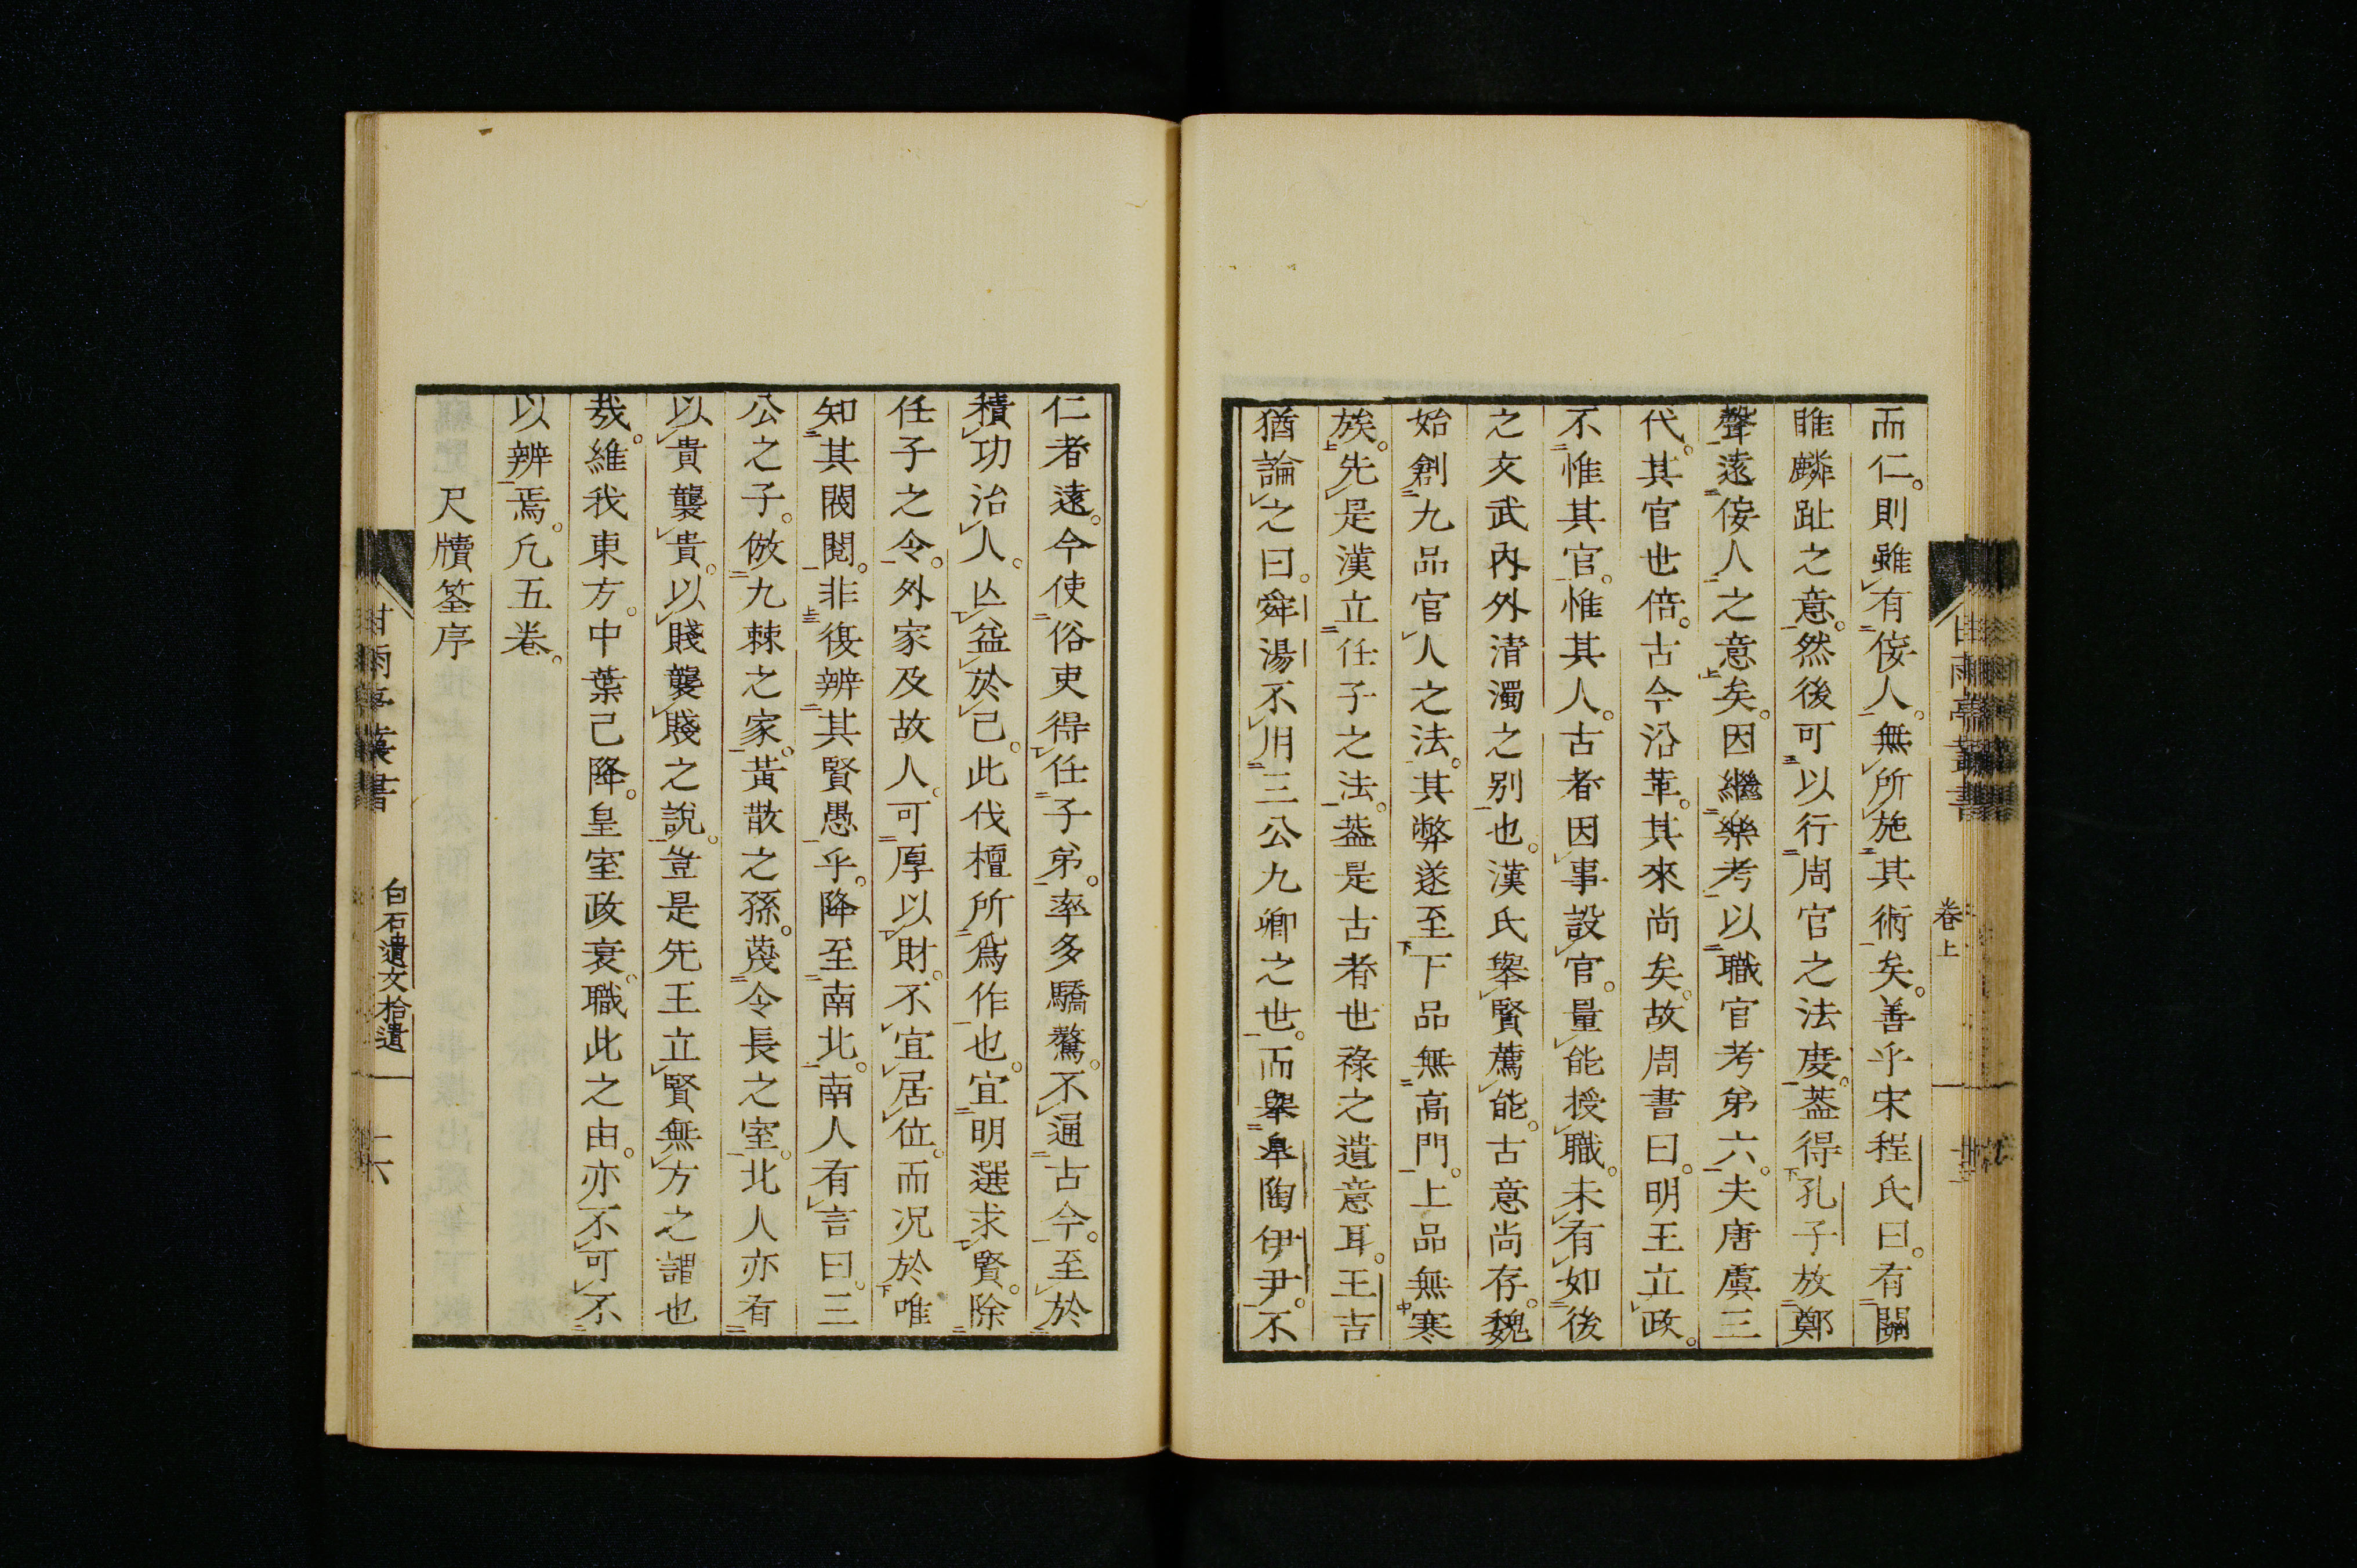 而仁。則雖有侫人。無所施其術矣。善乎宋程氏曰。有關
睢麟趾之意。然後可以行周官之法度。葢得孔子放鄭
聲遠侫人之意矣。因繼樂考以職官考弟六。夫唐虞三
代。其官世倍。古今沿革。其來尚矣。故周書曰。明王立政。
不惟其官。惟其人。古者因事設官。量能授職。未有如後
之文武內外淸濁之別也。漢氏擧賢薦能。古意尚存。魏
始創九品官人之法。其弊遂至下品無高門。上品無寒
族。先是漢立任子之法。葢是古者世祿之遺意耳。王吉
猶論之曰。舜湯不用三公九卿之世。而擧皐陶伊尹。不
仁者遠。今使俗吏得任子弟。率多驕驁。不通古今。至於
積功治人。亾益於己。此伐檀所爲作也。宜明選求賢。除
任子之令。外家及故人。可厚以財。不宜居位。而况於唯
知其閥閱。非復辨其賢愚乎。降至南北。南人有言曰。三
公之子。傲九棘之家。黃散之孫。蔑令長之室。北人亦有
以貴襲貴。以賤襲賤之說。豈是先王立賢無方之謂也
哉。維我東方。中葉已降。皇室政衰。職此之由。亦不可不
以辨焉。凢五卷。
尺牘筌序
甘雨亭叢書
卷上
甘雨亭叢書
白石遺文拾遺
十六